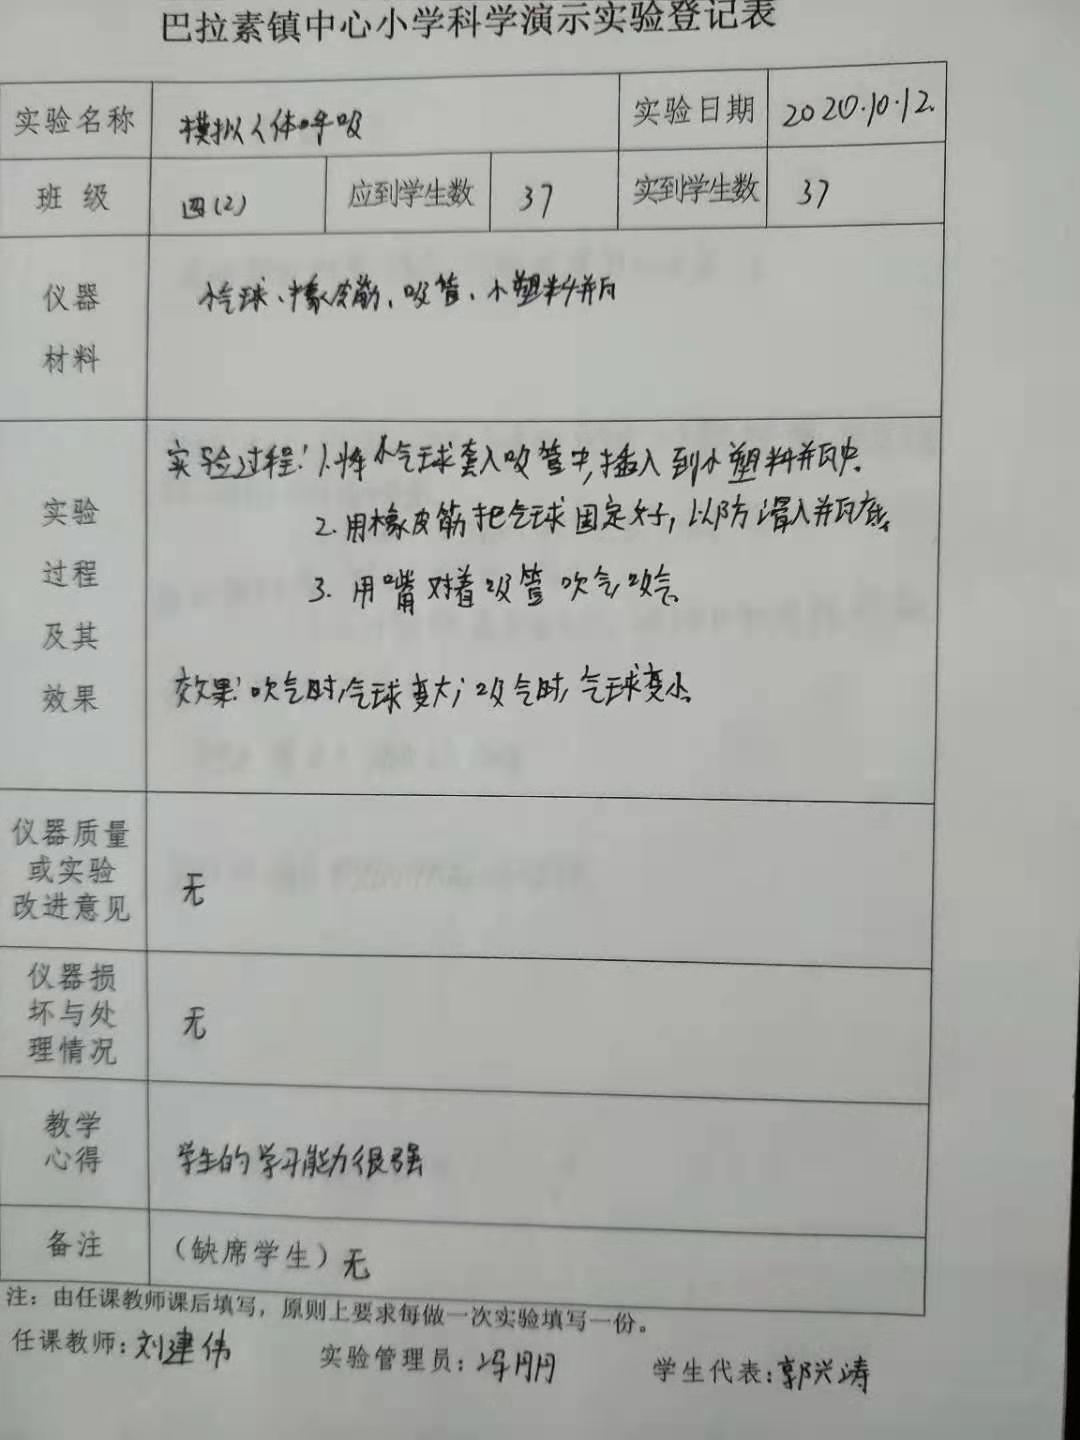 巴拉素镇中心小学科学演示实验登记表
实验名称 模拟人体呼吸 实验日期 2020.10.12.
班 级 四(2) 应到学生数 37 实到学生数 37
仪器
材料
小气球、橡皮筋、吸管、小塑料瓶
实验
过程
及其
效果
实验过程:1.将小气球套入吸管中,插入到小塑料瓶中。
2.用橡皮筋把气球固定好,以防滑入瓶底。
3.用嘴对着吸管吹气,吸气。
效果:吹气时,气球变大;吸气时,气球变小。
仪器质量
或实验
改进意见
无
仪器损
坏与处
理情况
无
教学
心得
学生的学习能力很强
备注 (缺席学生)无
注:由任课教师课后填写,原则上要求每做一次实验填写一份。
任课教师:刘建伟 实验管理员:冯丹丹 学生代表:郭兴涛